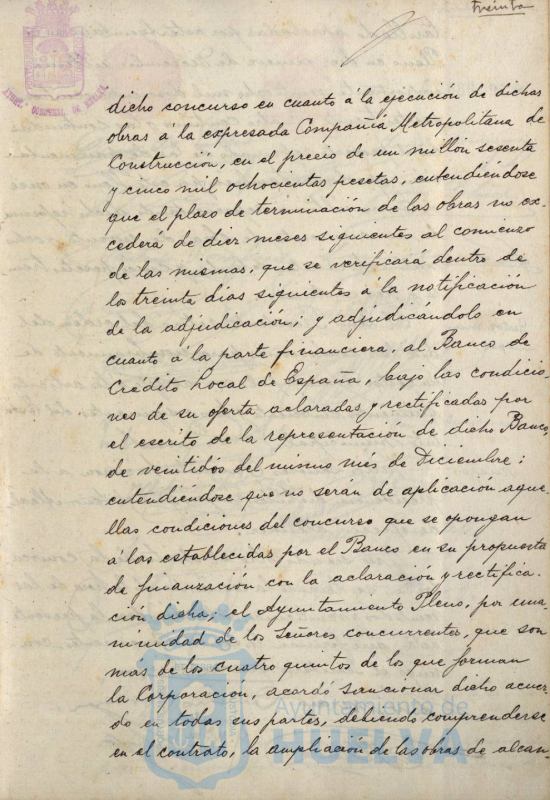 treinta
dicho concurso en cuanto á la ejecución de dichas
obras á la expresada Compañía Metropolitana de
Construcción, en el precio de un millón sesenta
y cinco mil ochocientas pesetas, entendiéndose
que el plazo de terminación de las obras no ex-
cederá de diez meses siguientes al comienzo
de las mismas, que se verificará dentro de
los treinta días siguientes á la notificación
de la adjudicación; y adjudicándolo en
cuanto á la parte financiera, al Banco de
Crédito Local de España, bajo las condicio-
nes de su oferta aclaradas y rectificadas por
el escrito de la representación de dicho Banco,
de veintidós del mismo més de Diciembre;
entendiéndose que no serán de aplicación aque-
llas condiciones del concurso que se opongan
á las establecidas por el Banco en su propuesta
de finanzación con la aclaración y rectifica-
ción dicha; el Ayuntamiento Pleno, por una-
nimidad de los Señores concurrentes, que son
más de los cuatro quintos de los que forman
la Corporación, acordó sancionar dicho acuer-
do en todas sus partes, debiendo comprenderse
en el contrato, la ampliación de las obras de alcan-
Ayuntamiento de
HUELVA